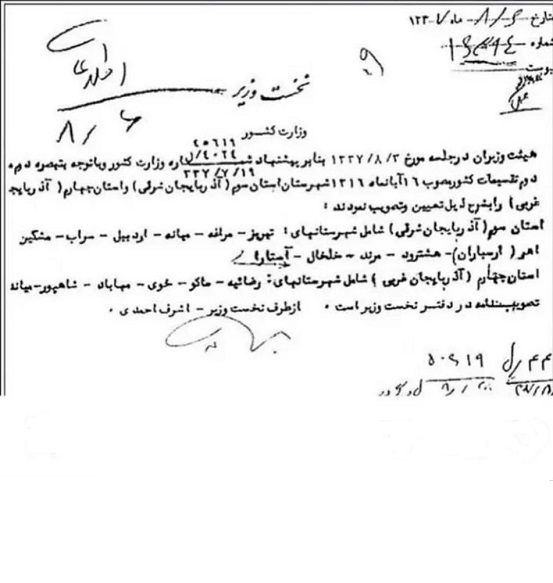 تاریخ ۸/۶ ماه ۱۳۳۷
شماره ۱۶۳۹۴
پیوست
نخست وزیر
۸/۶
وزارت کشور
۴۰۶۱۹
هیئت وزیران در جلسه مورخ ۱۳۳۷/۸/۳ بنابر پیشنهاد شماره وزارت کشور و باتوجه به تبصره دوم
۳۳۷/۷/۱۹
دوم تقسیمات کشور مصوب ۱۶ آبانماه ۱۳۱۶ شهرستان استان سوم (آذربایجان شرقی) و استان چهارم (آذربایجان
غربی) را بشرح ذیل تعیین و تصویب نمودند :
استان سوم (آذربایجان شرقی) شامل شهرستانهای : تبریز – مراغه – میانه – اردبیل – سراب – مشکین
اهر (ارسباران) – هشترود – مرند – خلخال – آستارا
استان چهارم (آذربایجان غربی) شامل شهرستانهای : رضائیه – ماکو – خوی – مهاباد – شاهپور – میاند
تصویبنامه در دفتر نخست وزیر است . ازطرف نخست وزیر – اشرف احمدی .
۴۴
۵۰۶۱۹